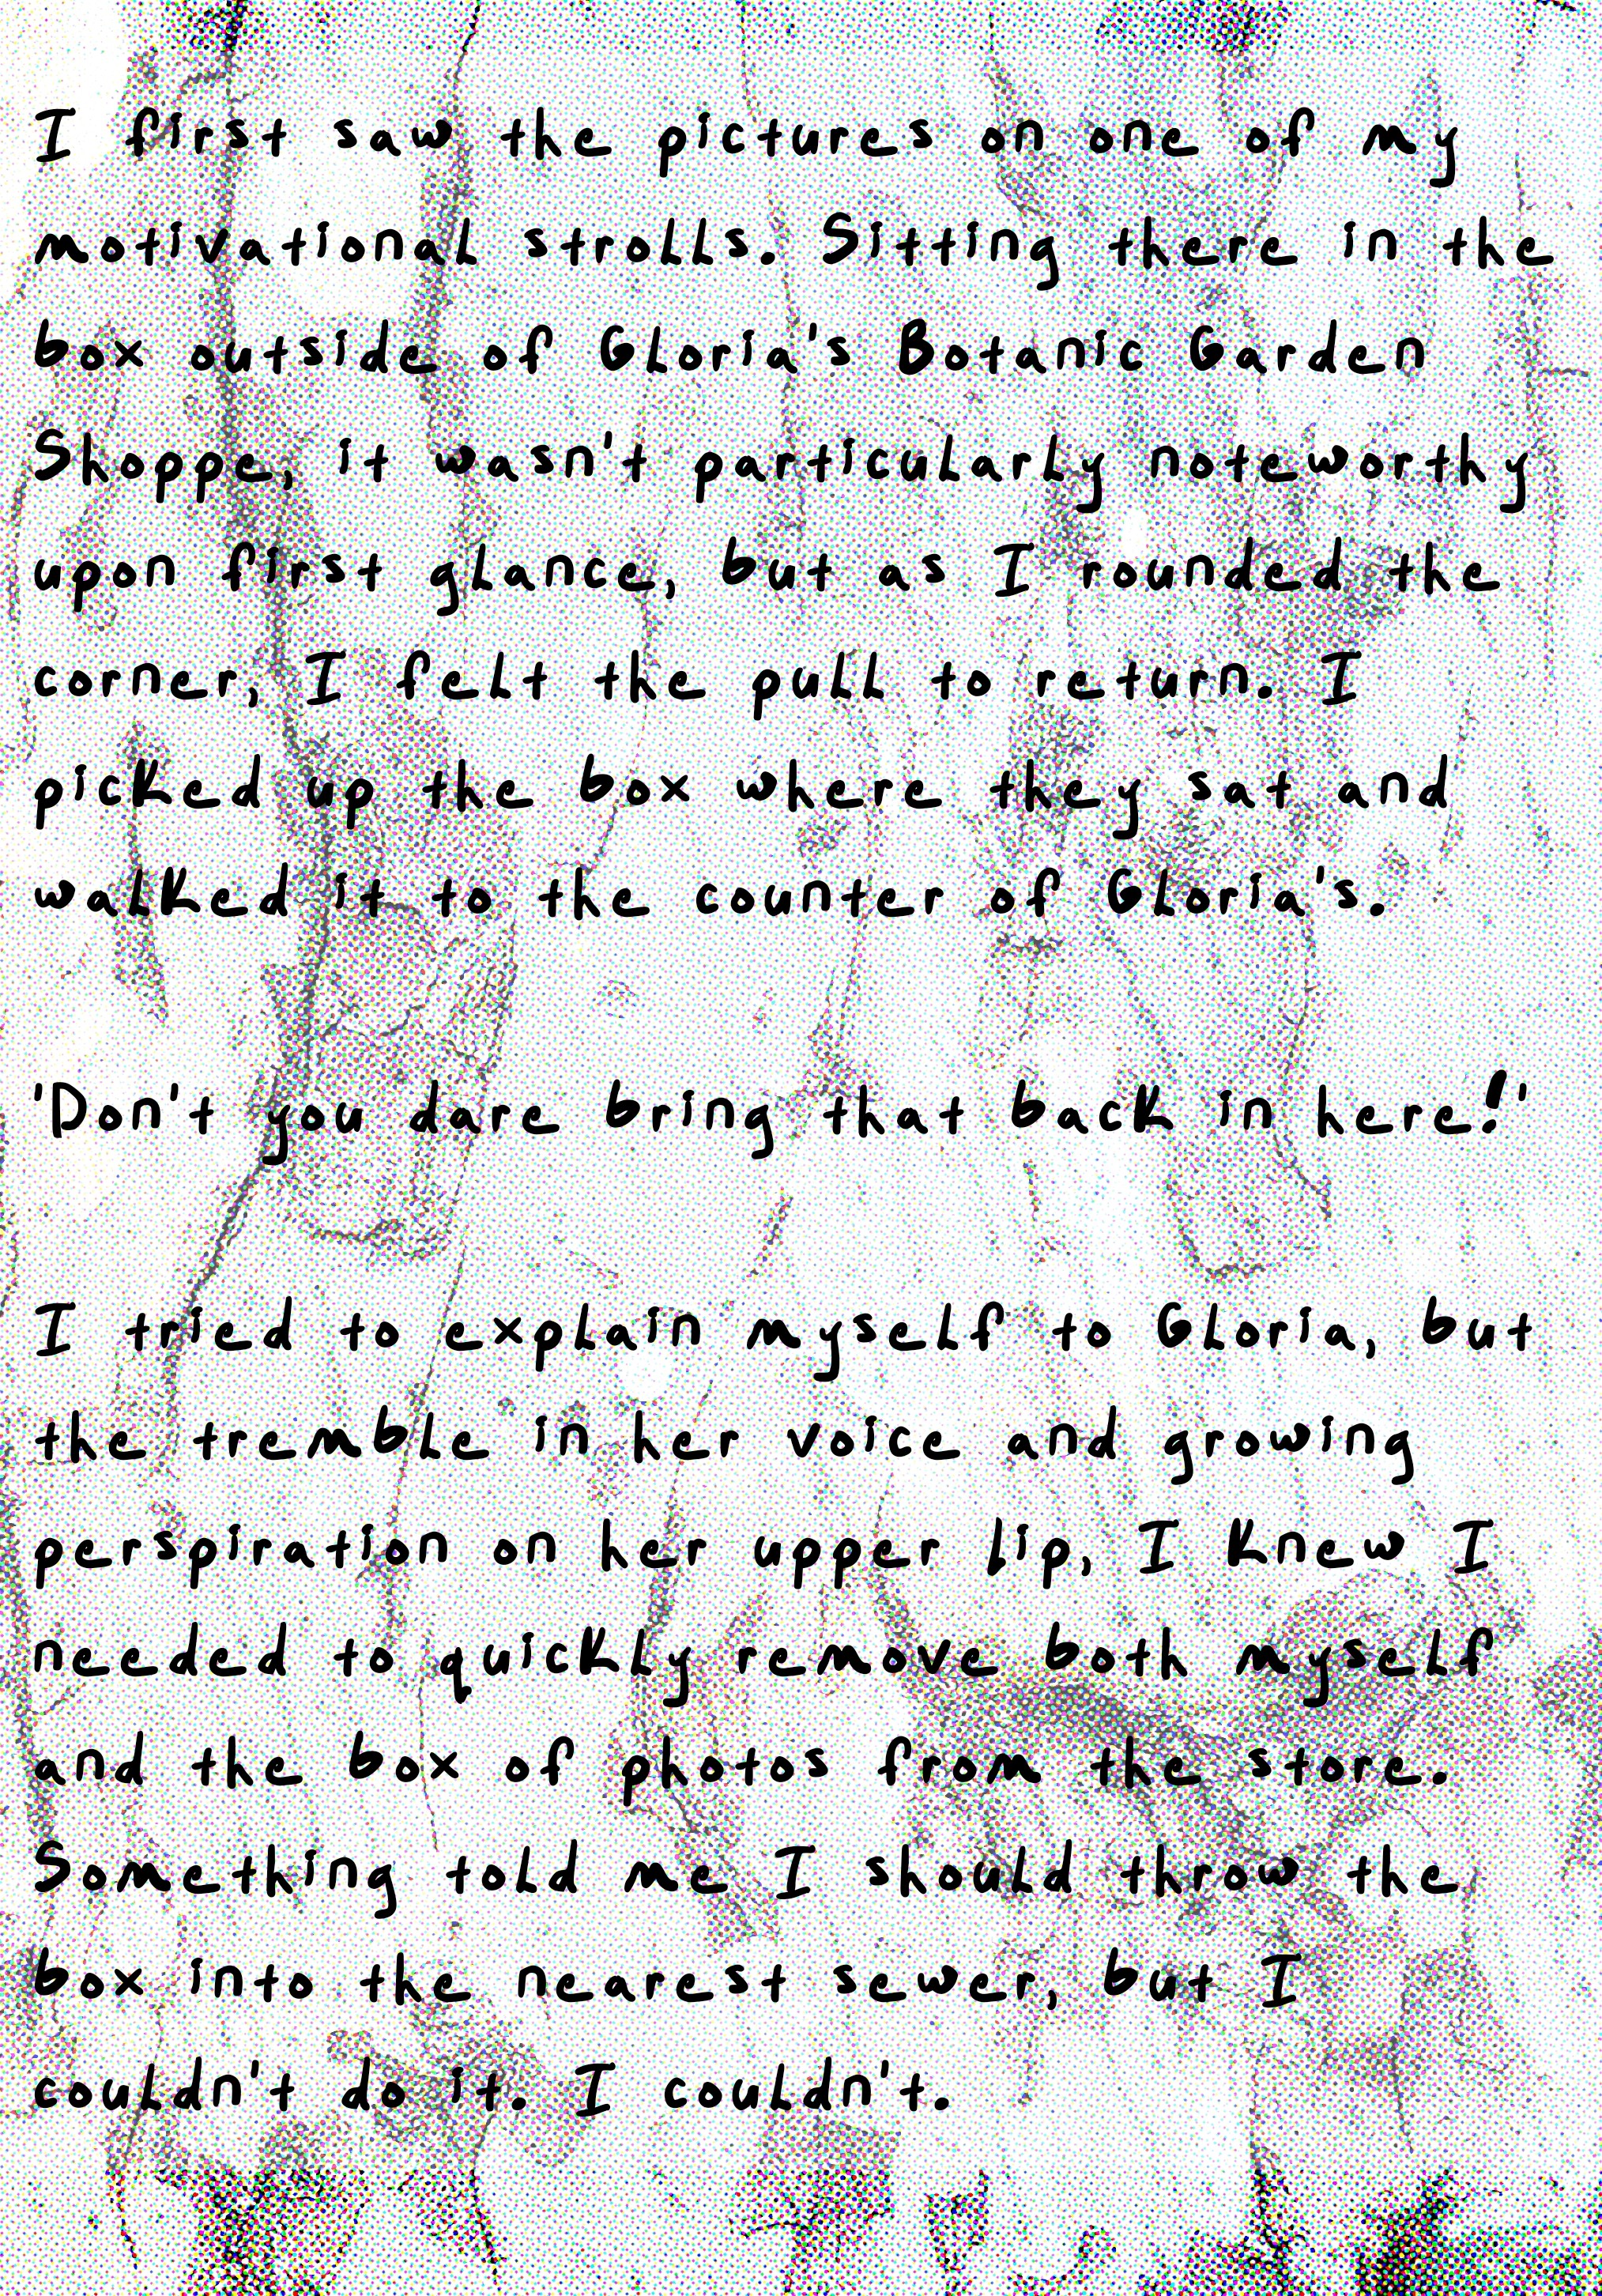 I first saw the pictures on one of my
motivational strolls. Sitting there in the
box outside of Gloria's Botanic Garden
Shoppe, it wasn't particularly noteworthy
upon first glance, but as I rounded the
corner, I felt the pull to return. I
picked up the box where they sat and
walked it to the counter of Gloria's.
'Don't you dare bring that back in here!'
I tried to explain myself to Gloria, but
the tremble in her voice and growing
perspiration on her upper lip, I knew I
needed to quickly remove both myself
and the box of photos from the store.
Something told me I should throw the
box into the nearest sewer, but I
couldn't do it. I couldn't.